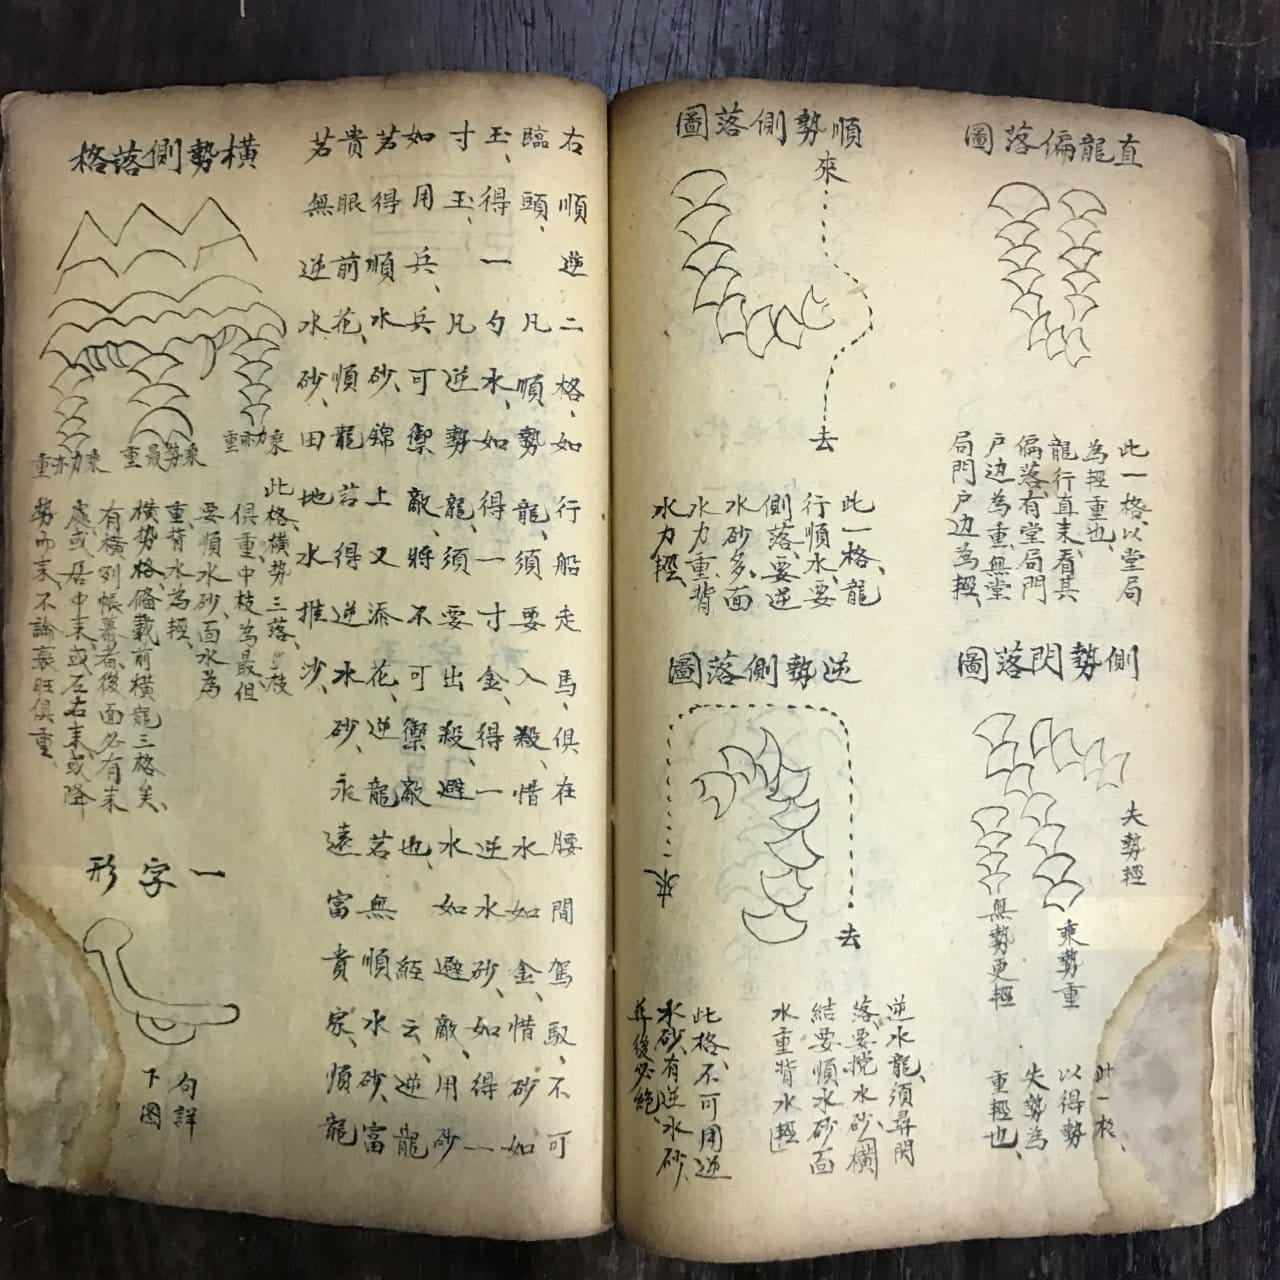 直龍偏落圖
此一格、以堂局
為輕重也、
龍行直来、看其
偏落、有堂局門
户边為重、無堂
局門户边為輕、
側勢閃落圖
失勢輕
乘勢重
無勢更輕
此一格、
以得勢
失勢為
重輕也、
順勢側落圖
來
去
此一格、龍
行順水、要
側落、要逆
水砂多、面
水力重、背
水力輕、
逆勢側落圖
來
去
逆水龍、須尋閃
落、要挽水砂、橫
結要順水砂、面
水重、背水輕
此格、不可用逆
水砂、有逆水砂、
葬後必絕、
右順逆二格、如行船走馬、俱在腰間駕馭、不可
臨頭、凡順勢龍、須要入殺、惜水如金、惜砂如
玉、得一勺水、如得一寸金、得一逆水砂、如得一
寸玉、凡逆勢龍、須要出殺、避水如避敵、用砂
如用兵、兵可禦敵、將不可禦敵也、經云、逆龍
若得順水砂、錦上又添花、逆龍若無順水砂、富
貴眼前花、順龍若得逆水砂、永遠富貴家、順龍
若無逆水砂、田地水推沙、
橫勢側落格
乘力亦重
乘勢最重
乘力亦重
此格、橫勢三落、三枝
俱重、中枝為最、但
要順水砂、面水為
重、背水為輕、
橫勢格、俻載前橫龍三格矣、
有橫列帳幕者、後面必有来
處、或居中来、或左右来、或降
勢而来、不論衰旺俱重、
一字形
句詳
下图